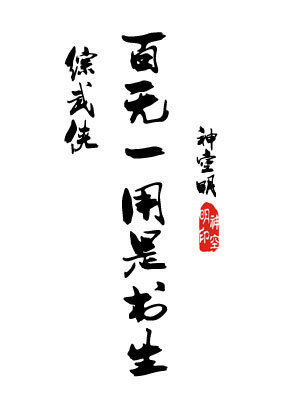 综武侠
百无一用是书生
神堂明
神空明印